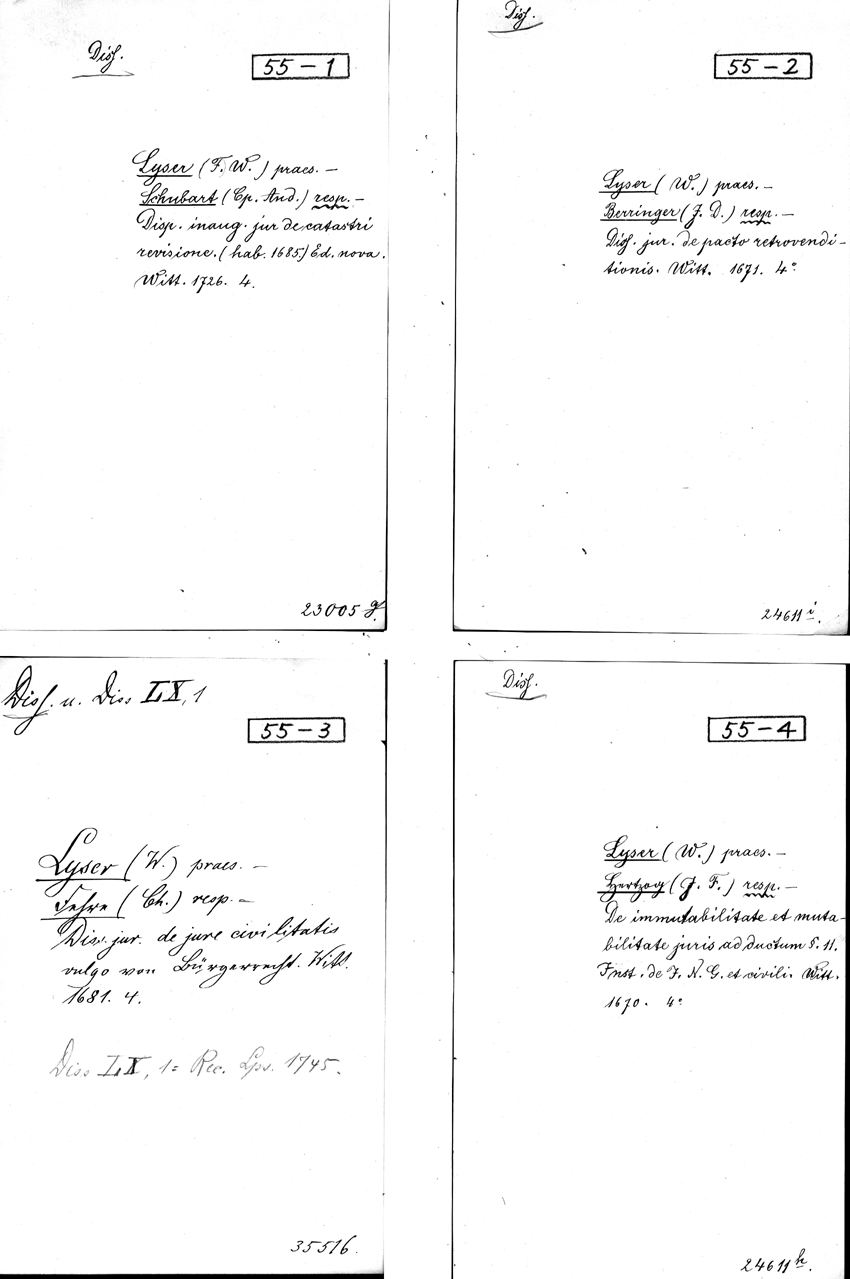 Diss.
55-1
Lyser (F. W.) praes. —
Schubart (Cp. And.) resp. —
Disp. inaug. jur de catastri
revisione. (hab. 1685.) Ed. nova.
Witt. 1726. 4.
23005 g.
Diss.
55-2
Lyser (W.) praes. —
Berringer (J. D.) resp. —
Diss. jur. de pacto retrovendi-
tionis. Witt. 1671. 4°
24611 i.
Diss. u. Diss LX, 1
55-3
Lyser (W.) praes. —
Fehre (Ch.) resp. —
Diss. jur. de jure civilitatis
vulgo von Bürgerrecht. Witt.
1681. 4.
Diss LX, 1 = Rec. Lps. 1745.
35516.
Diss.
55-4
Lyser (W.) praes. —
Hertzog (J. F.) resp. —
De immutabilitate et muta-
bilitate juris ad ductum §. 11.
Inst. de J. N. G. et civili. Witt.
1670. 4°
24611 h.